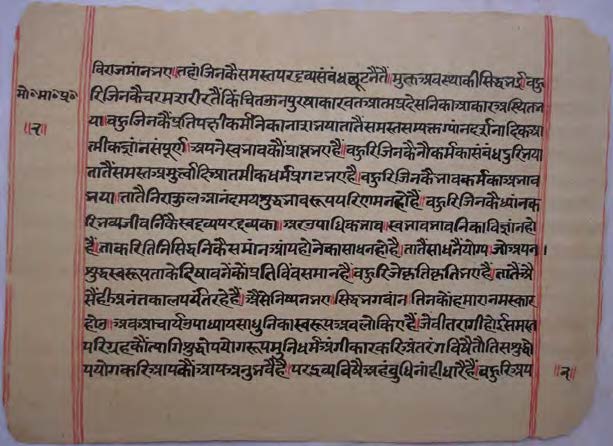 विराजमांन भए। तहां जिनकै समस्त परद्रव्यसंबंध छूटनेतैं मुक्त अवस्थाकी सिद्धि भई बहु
मो॰ मा॰ प्र॰
रि जिनकै चरम शरीरतैं किंचित ऊन पुरुषाकारवत आत्मप्रदेसनिका आकार अवस्थित भ
॥२॥
या। बहुरि जिनकैं प्रतिपक्षी कर्मनिका नाश भया तातैं समस्त सम्यक्त ग्यांन दर्शनादिक आ
त्मीक गुंन संपूर्ण अपने स्वभावकौं प्राप्त भए हैं। बहुरि जिनकै नौकर्मका संबंध दूरि भया
तातैं समस्त अमूर्तत्वादि आतमीक धर्म प्रगट भए हैं। बहुरि जिनकै भावकर्मका अभाव
भया। तातैं निराकुल आनंदमय शुद्ध भावरूप परिणमन हो हैं। बहुरि जिनकै ध्यांनक
रि भव्य जीवनिकै स्वद्रव्य परद्रव्यका। अर उपाधिक भाव। स्वभावभावनिका विज्ञांन हो
है। ताकरि तिनि सिद्धनिकै समांन आप होनेका साधन हो है। तातैं साधनैं योग्य जो अपना
शुद्ध स्वरूप ताके दिषावनेकौं प्रतिबिंब समान है। बहुरि जे कृतकृत्य भए हैं। तातैं अै
सैं ही अनंतकाल पर्यंत रहै हैं। अैसे निष्पन्न भए सिद्ध भगवांन तिनकौं हमारा नमस्कार
होउ। अब आचार्य उपाध्याय साधुनिका स्वरूप अवलोकिए है। जे वीतरागी होई समस्त
परिग्रहकौं त्यागि शुद्धोपयोग रूप मुनिधर्म अंगीकार करि अंतरंग विषै तौ तिस शुद्धो
पयोग करि आपकौं आप अनुभवै है। परद्रव्य विषै अहंबुधि नांही धारै है। बहुरि अप
॥२